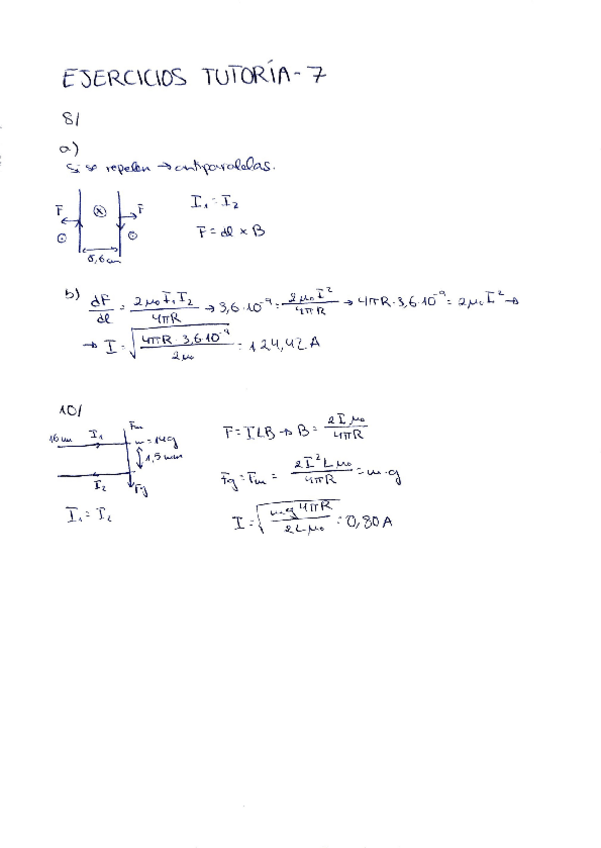 EJERCICIOS TUTORÍA-7
8/
a)
Si se repelen → antiparalelas.
F ⊗ F I₁ = I₂
F = dl × B
8,6 cm
b) dF/dl = 2μ₀I₁I₂/4πR → 3,6·10⁻⁹ = 2μ₀I²/4πR → 4πR·3,6·10⁻⁹ = 2μ₀I² →
→ I = √(4πR·3,6·10⁻⁹/2μ₀) = 124,42 A
10/
16 cm I₁ Fm F = ILB → B = 2Iμ₀/4πR
1,5 mm
I₂ Fg Fg = Fm = 2I²Lμ₀/4πR = m·g
I₁ = I₂ I = √(m·g 4πR/2Lμ₀) = 0,80 A